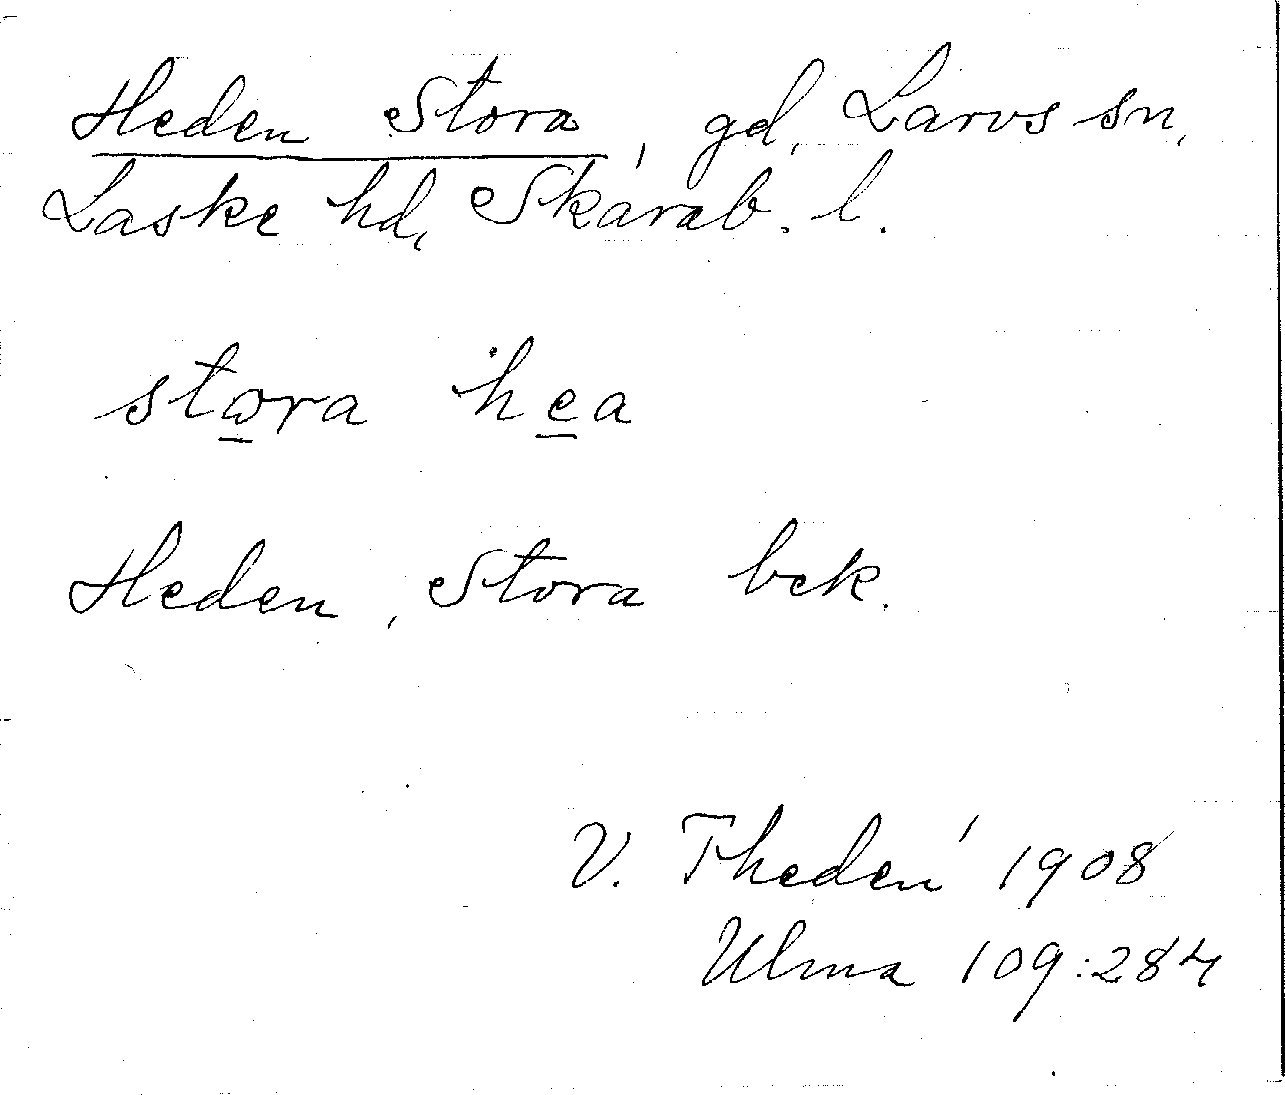 Heden Stora, gd, Larvs sn,
Laske hd, Skarab. l.
stωra hea
Heden, Stora bek.
V. Thedén 1908
Ulma 109:284